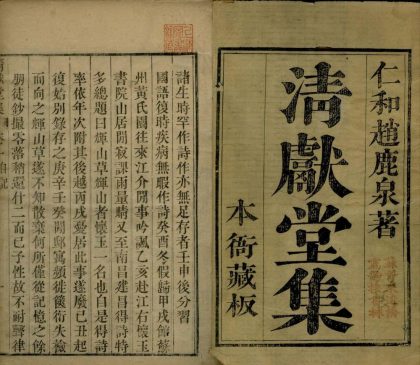 仁和趙鹿泉著
清獻堂集
本衙藏板
諸生時罕作詩作亦無足存者壬申後分習
國語後時疾病無暇作詩癸酉冬假歸甲戌館蘇
州黃氏園往來江介間事吟諷乙亥赴江右懷玉
書院山居閒寂課雨量晴又至南昌建昌得詩特
多總題曰輝山草輝山者懷玉一名也自是得詩
率依年次附其後越丙戌居此事遂廢己丑起
復始別錄存之庚辛壬癸間邸寓頻徙篋衍失撿
而向之輝山草遂不知散棄何所僅從記憶之餘
朋徒鈔撮零落緝還什二而已予性故不耐聲律